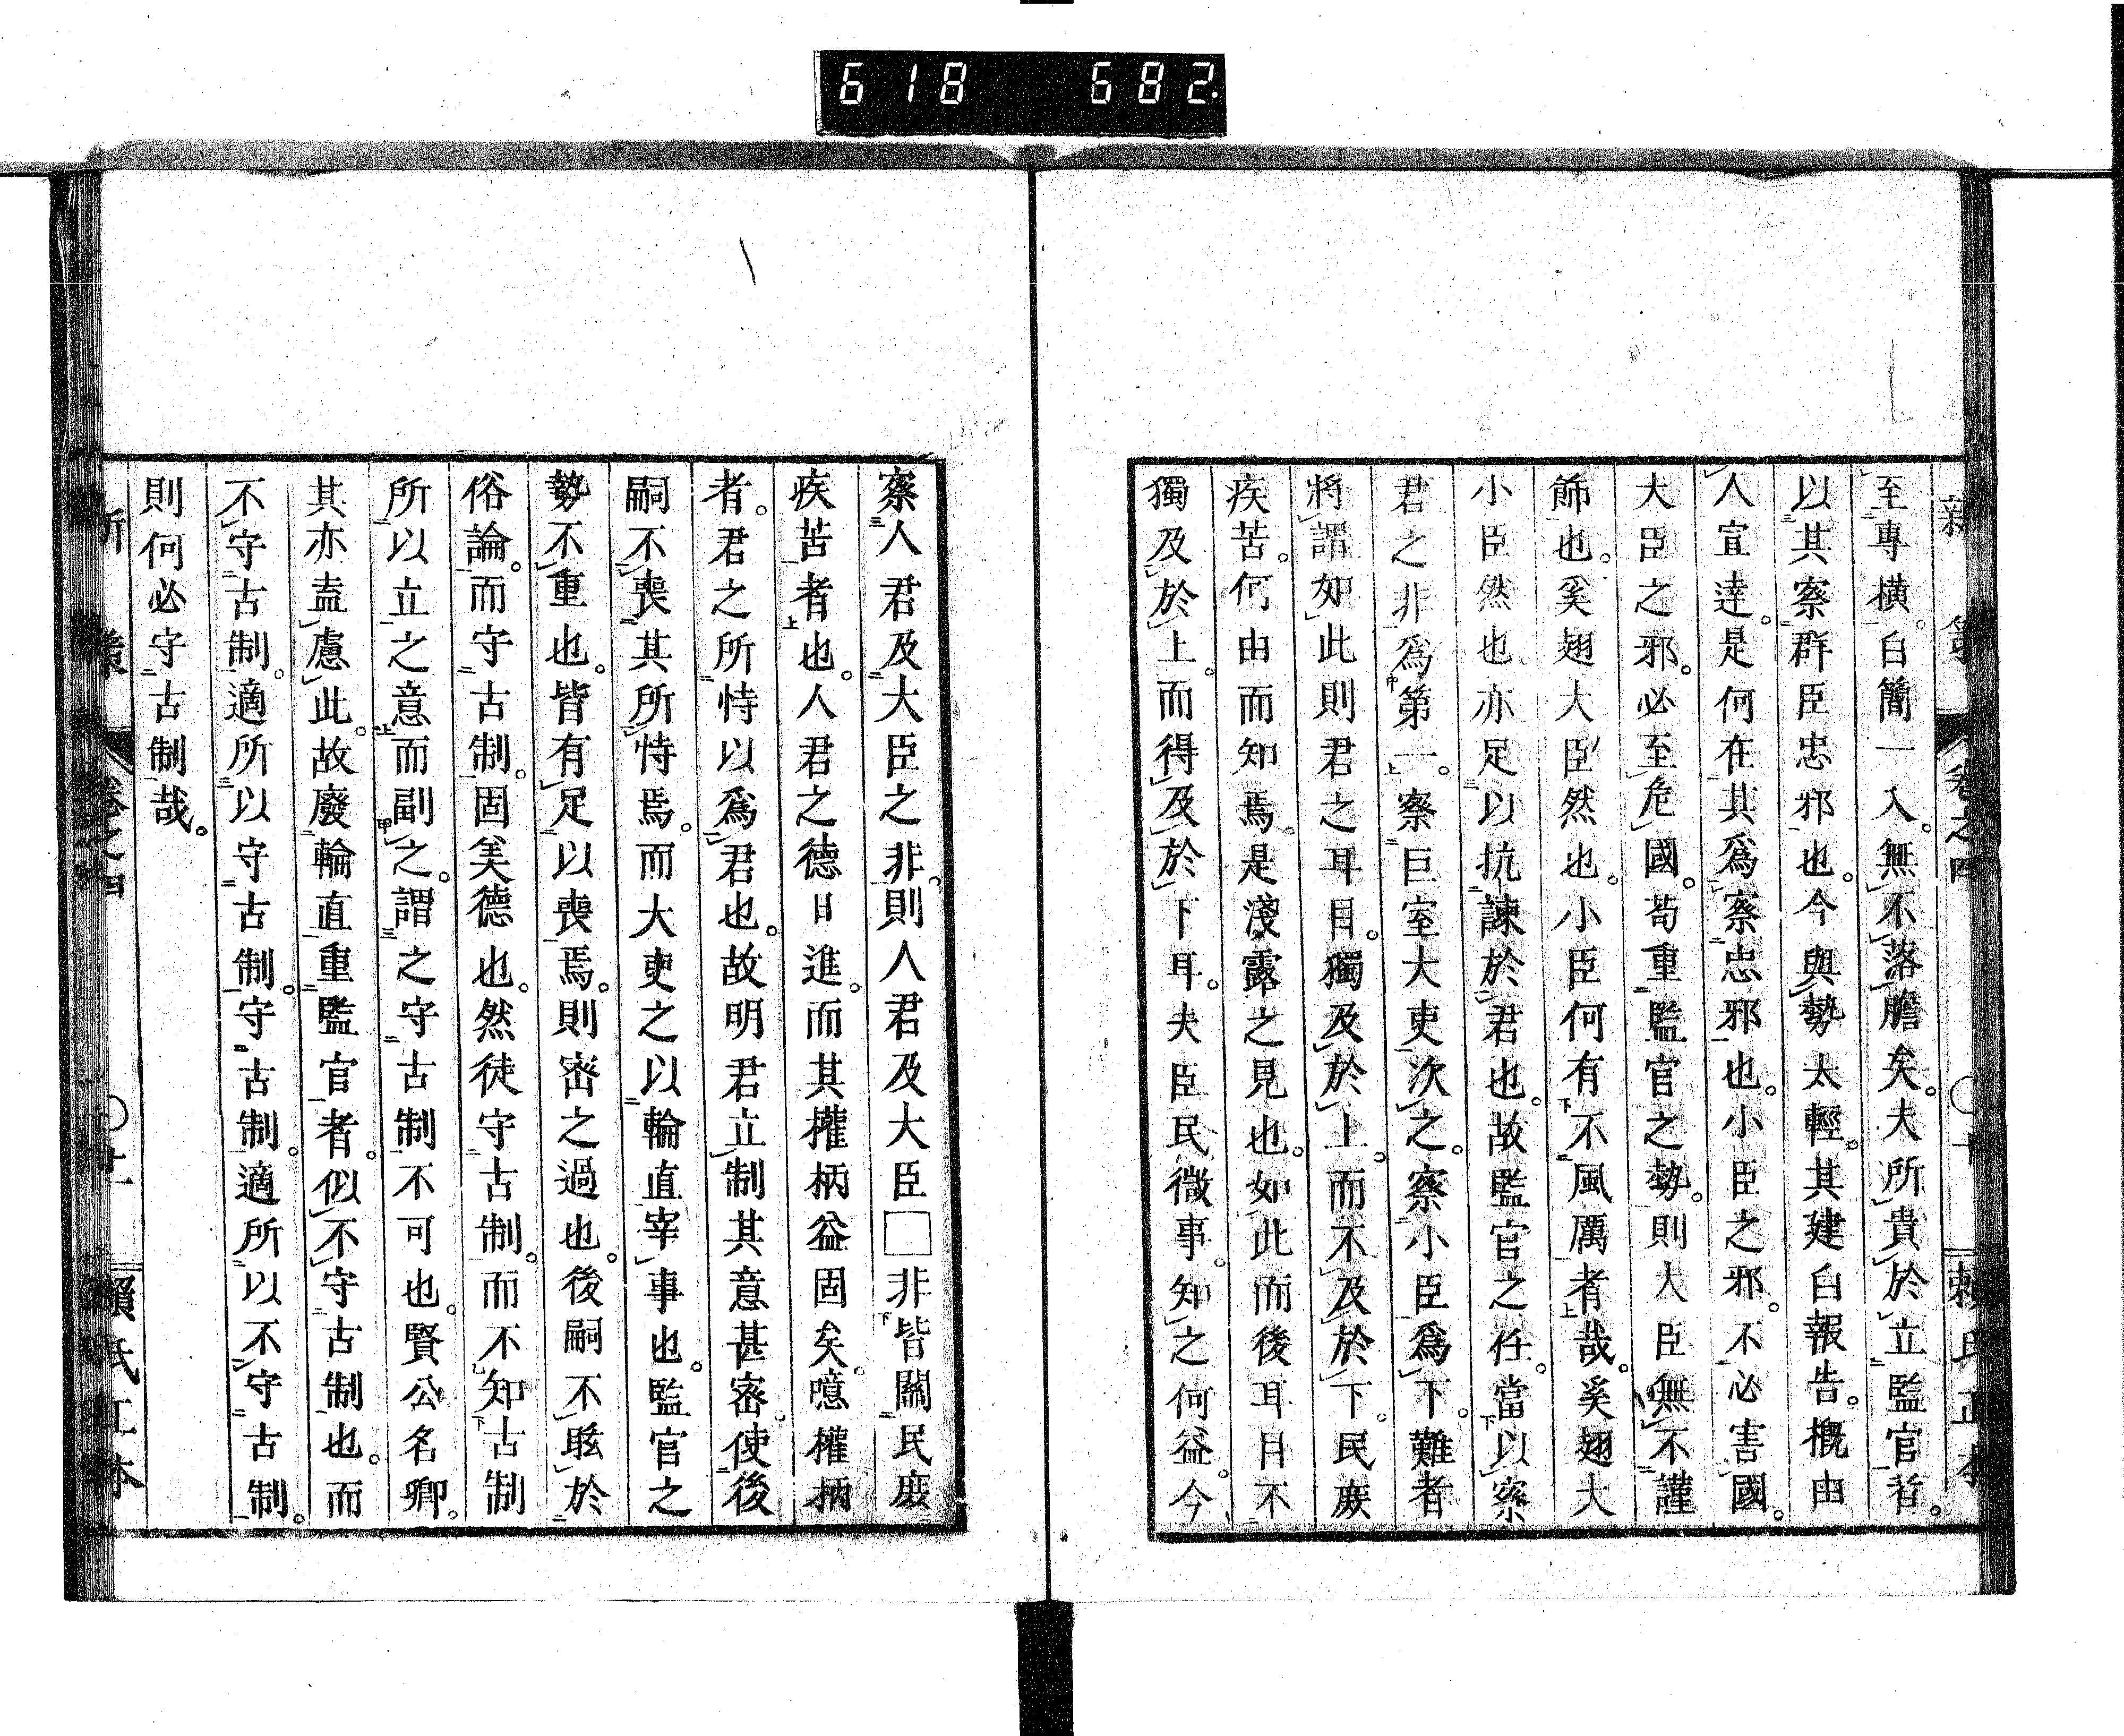 618 682.
新策 卷之四 ○十 賴氏正本
至專橫。白簡一入。無不落膽矣。夫所貴於立監官者。
以其察群臣忠邪也。今與勢太輕。其建白報告。概由
人宣達。是何在其爲察忠邪也。小臣之邪。不必害國。
大臣之邪。必至危國。苟重監官之勢。則大臣無不謹
飾也。奚翅大臣然也。小臣何有不風厲者哉。奚翅大
小臣然也。亦足以抗諫於君也。故監官之任。當以察
君之非爲第一。察巨室大吏次之。察小臣爲下。難者
將謂如此則君之耳目。獨及於上。而不及於下。民庶
疾苦。何由而知焉。是淺露之見也。如此而後耳目不
獨及於上。而得及於下耳。夫臣民微事。知之何益。今
察人君及大臣之非。則人君及大臣□非皆關民庶
疾苦者也。人君之德日進。而其權柄益固矣。噫權柄
者。君之所恃以爲君也。故明君立制其意甚密。使後
嗣不喪其所恃焉。而大吏之以輪直宰事也。監官之
勢不重也。皆有足以喪焉。則密之過也。後嗣不眩於
俗論。而守古制。固美德也。然徒守古制。而不知古制
所以立之意而副之。謂之守古制不可也。賢公名卿。
其亦盍慮此。故廢輪直重監官者。似不守古制也。而
不守古制。適所以守古制。守古制。適所以不守古制。
則何必守古制哉。
新策 卷之四 ○十一 賴氏正本